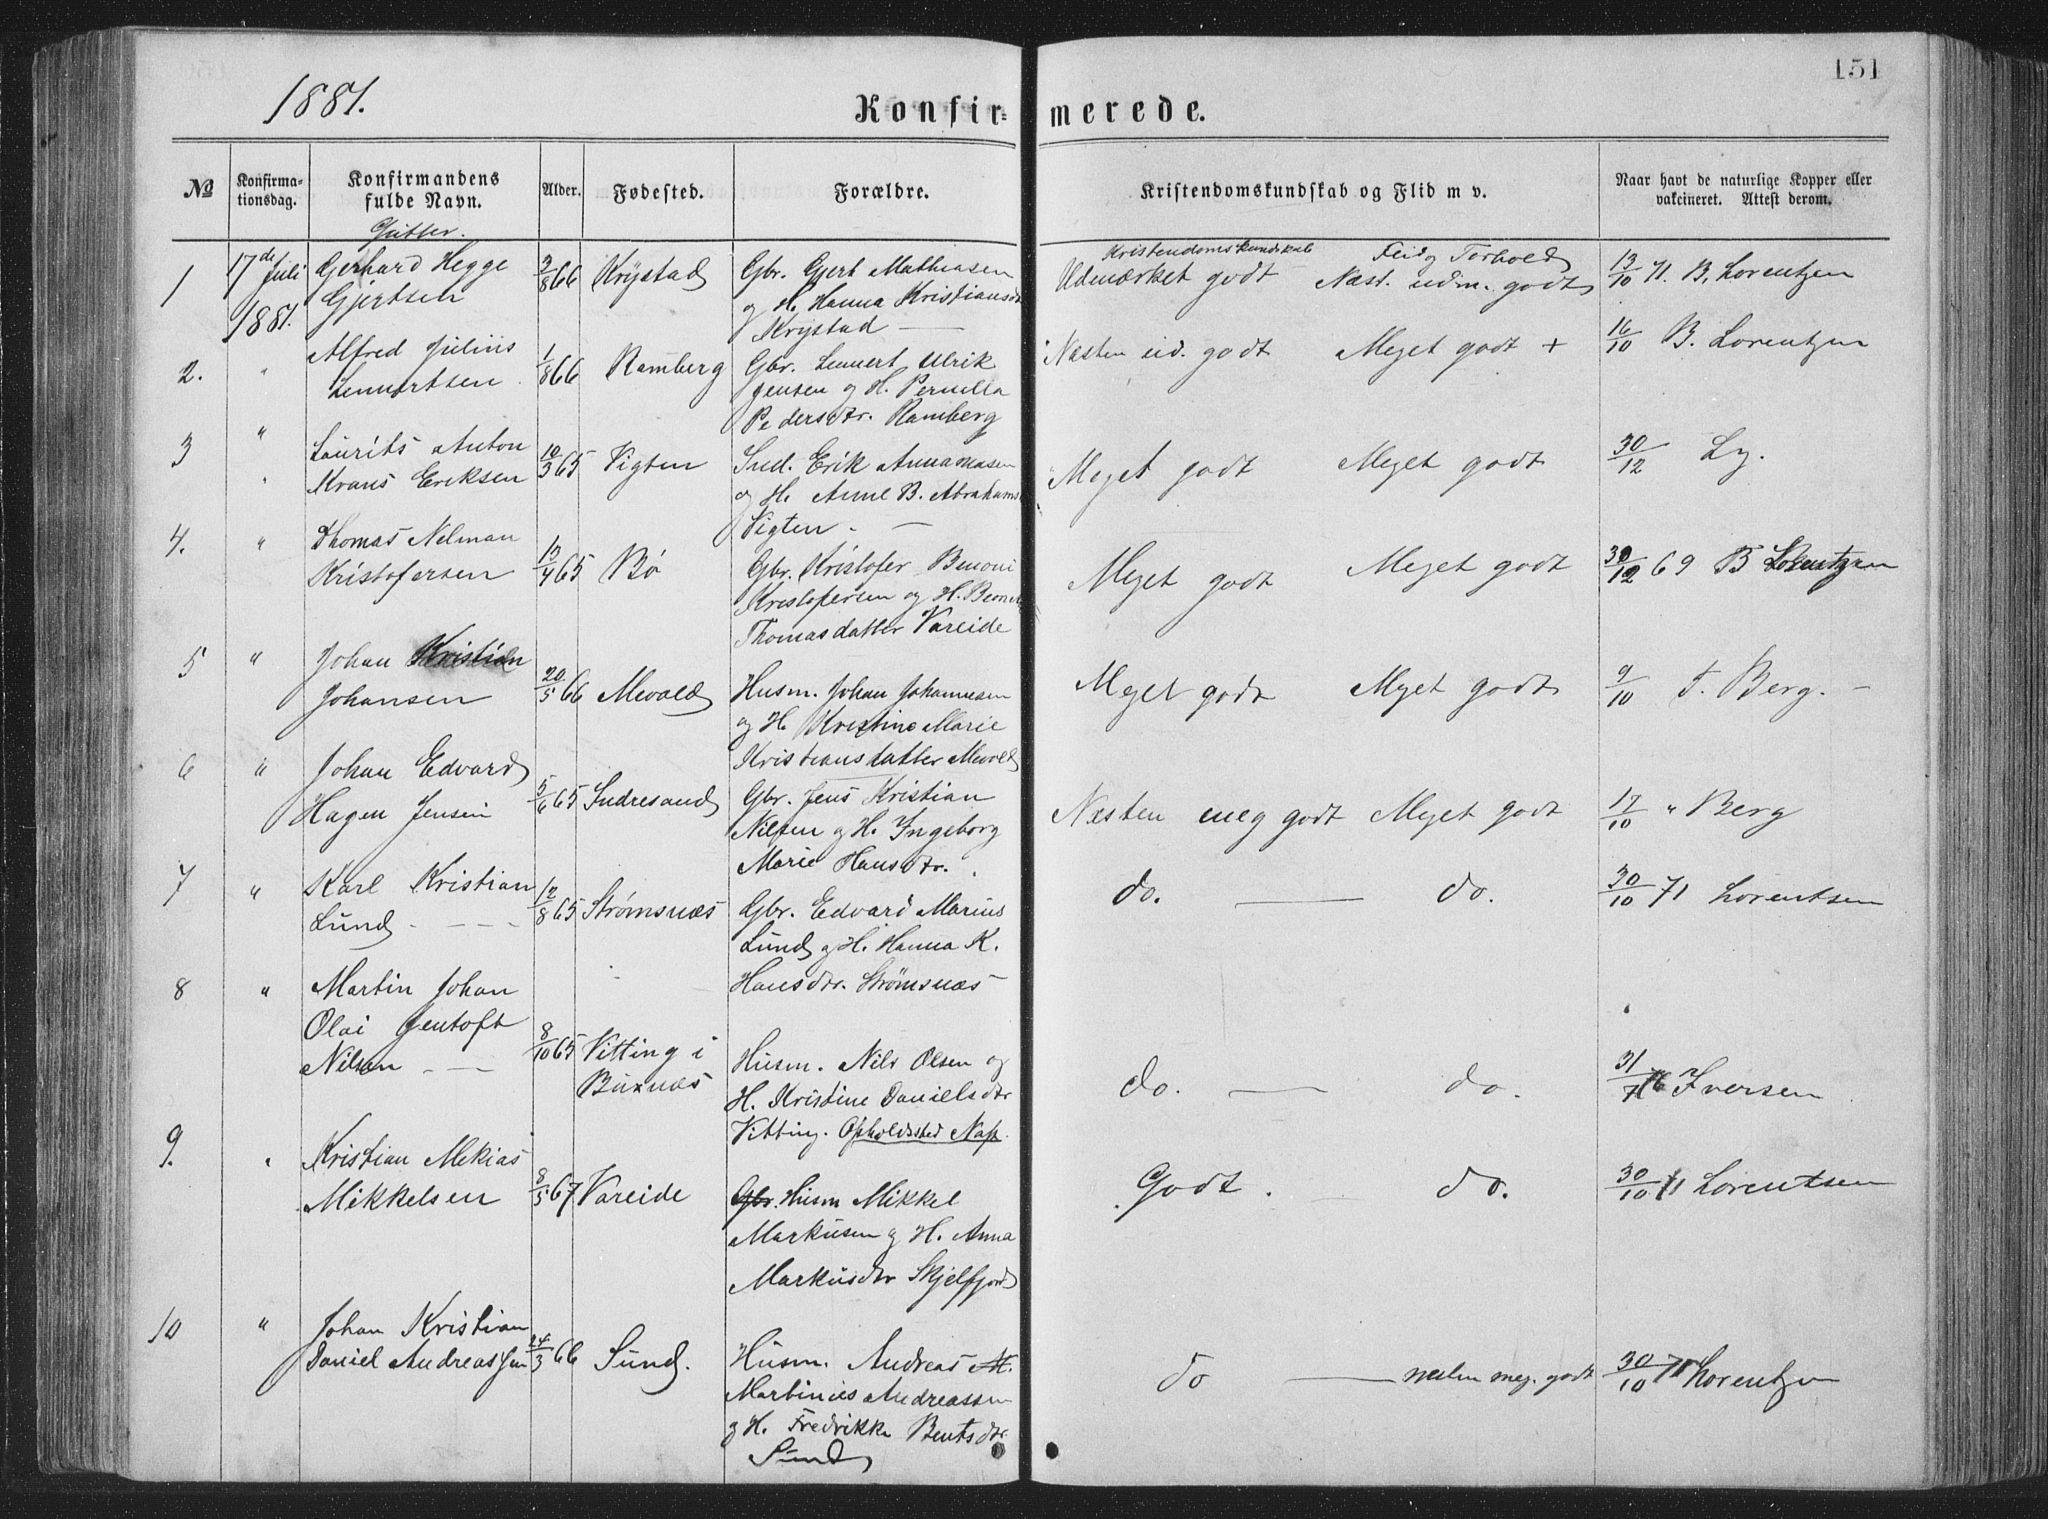 151
1881.
Konfirmerede.
№ Konfirmationsdag. Konfirmandens fulde Navn. Alder. Fødested. Forældre. Kristendomskundskab og Flid m v. Naar havt de naturlige Kopper eller vakcineret. Attest derom.
Gutter.
Kristendomskundskab Flid og Forhold
1 17de Juli 1881. Gerhard Hegge 2/8 66 Krystad Gbr. Gjert Mathiasen Udmærket godt Næst. udm. godt 13/10 71. B. Lorentzen
Gjertsen og H. Hanna Kristiansdt
Krystad —
2. " Alfred Julius 1/8 66 Ramberg Gbr. Lennert Ulrik Næsten ud. godt Meget godt + 16/10 B. Lorentzen
Lennertsen Jensen og H. Pernilla
Pedersdtr. Ramberg
3 " Laurits Anton 10/3 65 Vigten Ind. Erik Meget godt Meget godt 30/12 Ly.
Krans Eriksen og H. Anne B. Abrahams
Vigten —
4. " Thomas Nelman 13/4 65 Bø Gbr. Kristofer Benoni Meget godt Meget godt 30/12 69 B Lorentzen
Kristofersen Kristofersen og H.
Thomasdatter Vareide
5 " Johan Kristian 20/5 66 Mevold Husm. Johan Johannesen Meget godt Meget godt 9/10 T. Berg. —
Johansen og H. Kristine Marie
Kristiansdatter Mevold
6 " Johan Edvard 5/6 65 Sudresand Gbr. Jens Kristian Næsten meg godt Meget godt 17/10 " Berg
Hagen Jensen Nilsen og H. Ingeborg
Marie Hansdtr.
7 " Karl Kristian 12/8 65 Strømsnæs Gbr. Edvard Marius do. — do. 30/10 71 Lorentsen
Lund - - - - Lund og H. Hanna K.
Hansdtr. Strømsnæs
8 " Martin Johan
Olai Gentoft 8/10 65 Vitting i Husm. Nils Olsen og do. — do. 31/7 76 Iversen
Nilsen - — Buxnæs H. Kristine Danielsdtr
Vitting. Opholdssted Nap.
9. " Kristian Mekias 8/5 67 Vareide Gbr. Husm Mikkel Godt. do. 30/10 71 Lorentsen
Mikkelsen Markusen og H. Anna
Markusdtr Skjelfjord
10 " Johan Kristian 24/3 66 Sund. Husm. Andreas M. do — næsten meg. godt 30/10 71 Lorentzen
Daniel Andreassen Martinius Andreassen
og H. Fredrikke Bentsdtr
Sund